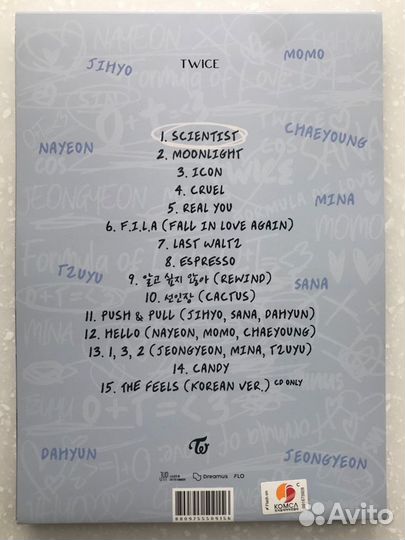 TWICE
JIHYO
MOMO
NAYEON
CHAEYOUNG
MINA
TZUYU
SANA
DAHYUN
JEONGYEON
1. SCIENTIST
2. MOONLIGHT
3. ICON
4. CRUEL
5. REAL YOU
6. F.I.L.A (FALL IN LOVE AGAIN)
7. LAST WALTZ
8. ESPRESSO
9. 알고 싶지 않아 (REWIND)
10. 선인장 (CACTUS)
11. PUSH & PULL (JIHYO, SANA, DAHYUN)
12. HELLO (NAYEON, MOMO, CHAEYOUNG)
13. 1, 3, 2 (JEONGYEON, MINA, TZUYU)
14. CANDY
15. THE FEELS (KOREAN VER.) CD ONLY
Dreamus
FLO
8809755509156
KOMCA
Avito